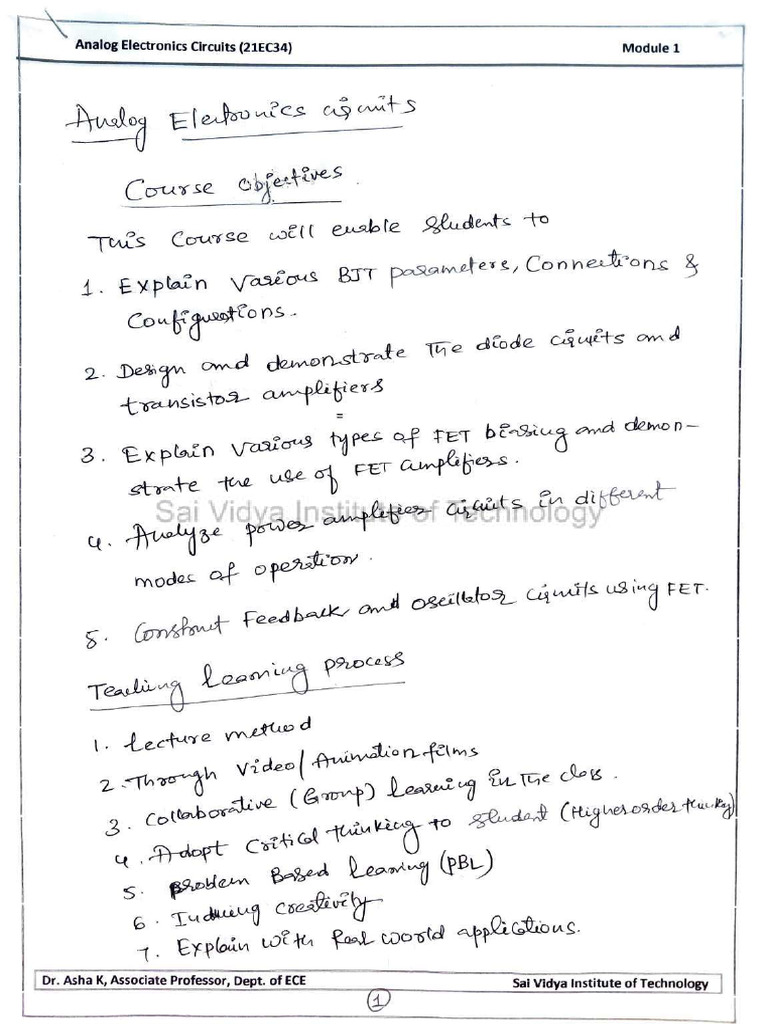 Analog Electronics Circuits (21EC34) Module 1
Analog Electronics circuits
Course objectives.
This Course will enable students to
1. Explain Various BJT parameters, Connections &
Configurations.
2. Design and demonstrate The diode circuits and
transistor amplifiers
3. Explain Various types of FET biasing and demon-
strate the use of FET amplifiers.
Sai Vidya Institute of Technology
4. Analyze power amplifier circuits in different
modes of operation.
5. Construct Feedback and oscillator circuits using FET.
Teaching learning process
1. Lecture method
2. Through Video/Animation films
3. Collaborative (Group) Learning in The class.
4. Adopt Critical thinking to student (Higher order thinking)
5. problem Based Learning (PBL)
6. Inducing creativity
7. Explain with Real world applications.
Dr. Asha K, Associate Professor, Dept. of ECE Sai Vidya Institute of Technology
1